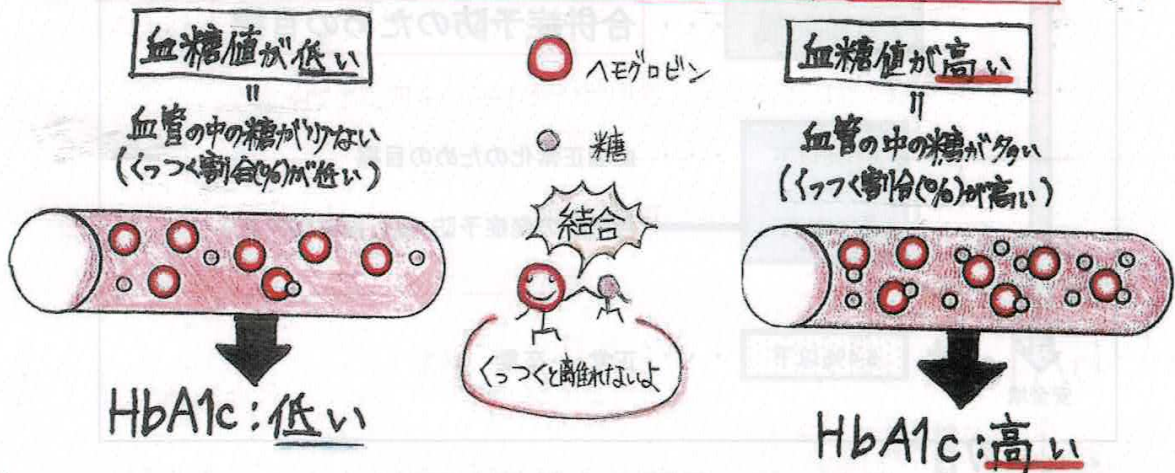 血糖値が低い
＝
血管の中の糖が少ない
(くっつく割合(%)が低い)
HbA1c:低い
ヘモグロビン
糖
結合
くっつくと離れないよ
血糖値が高い
＝
血管の中の糖が多い
(くっつく割合(%)が高い)
HbA1c:高い